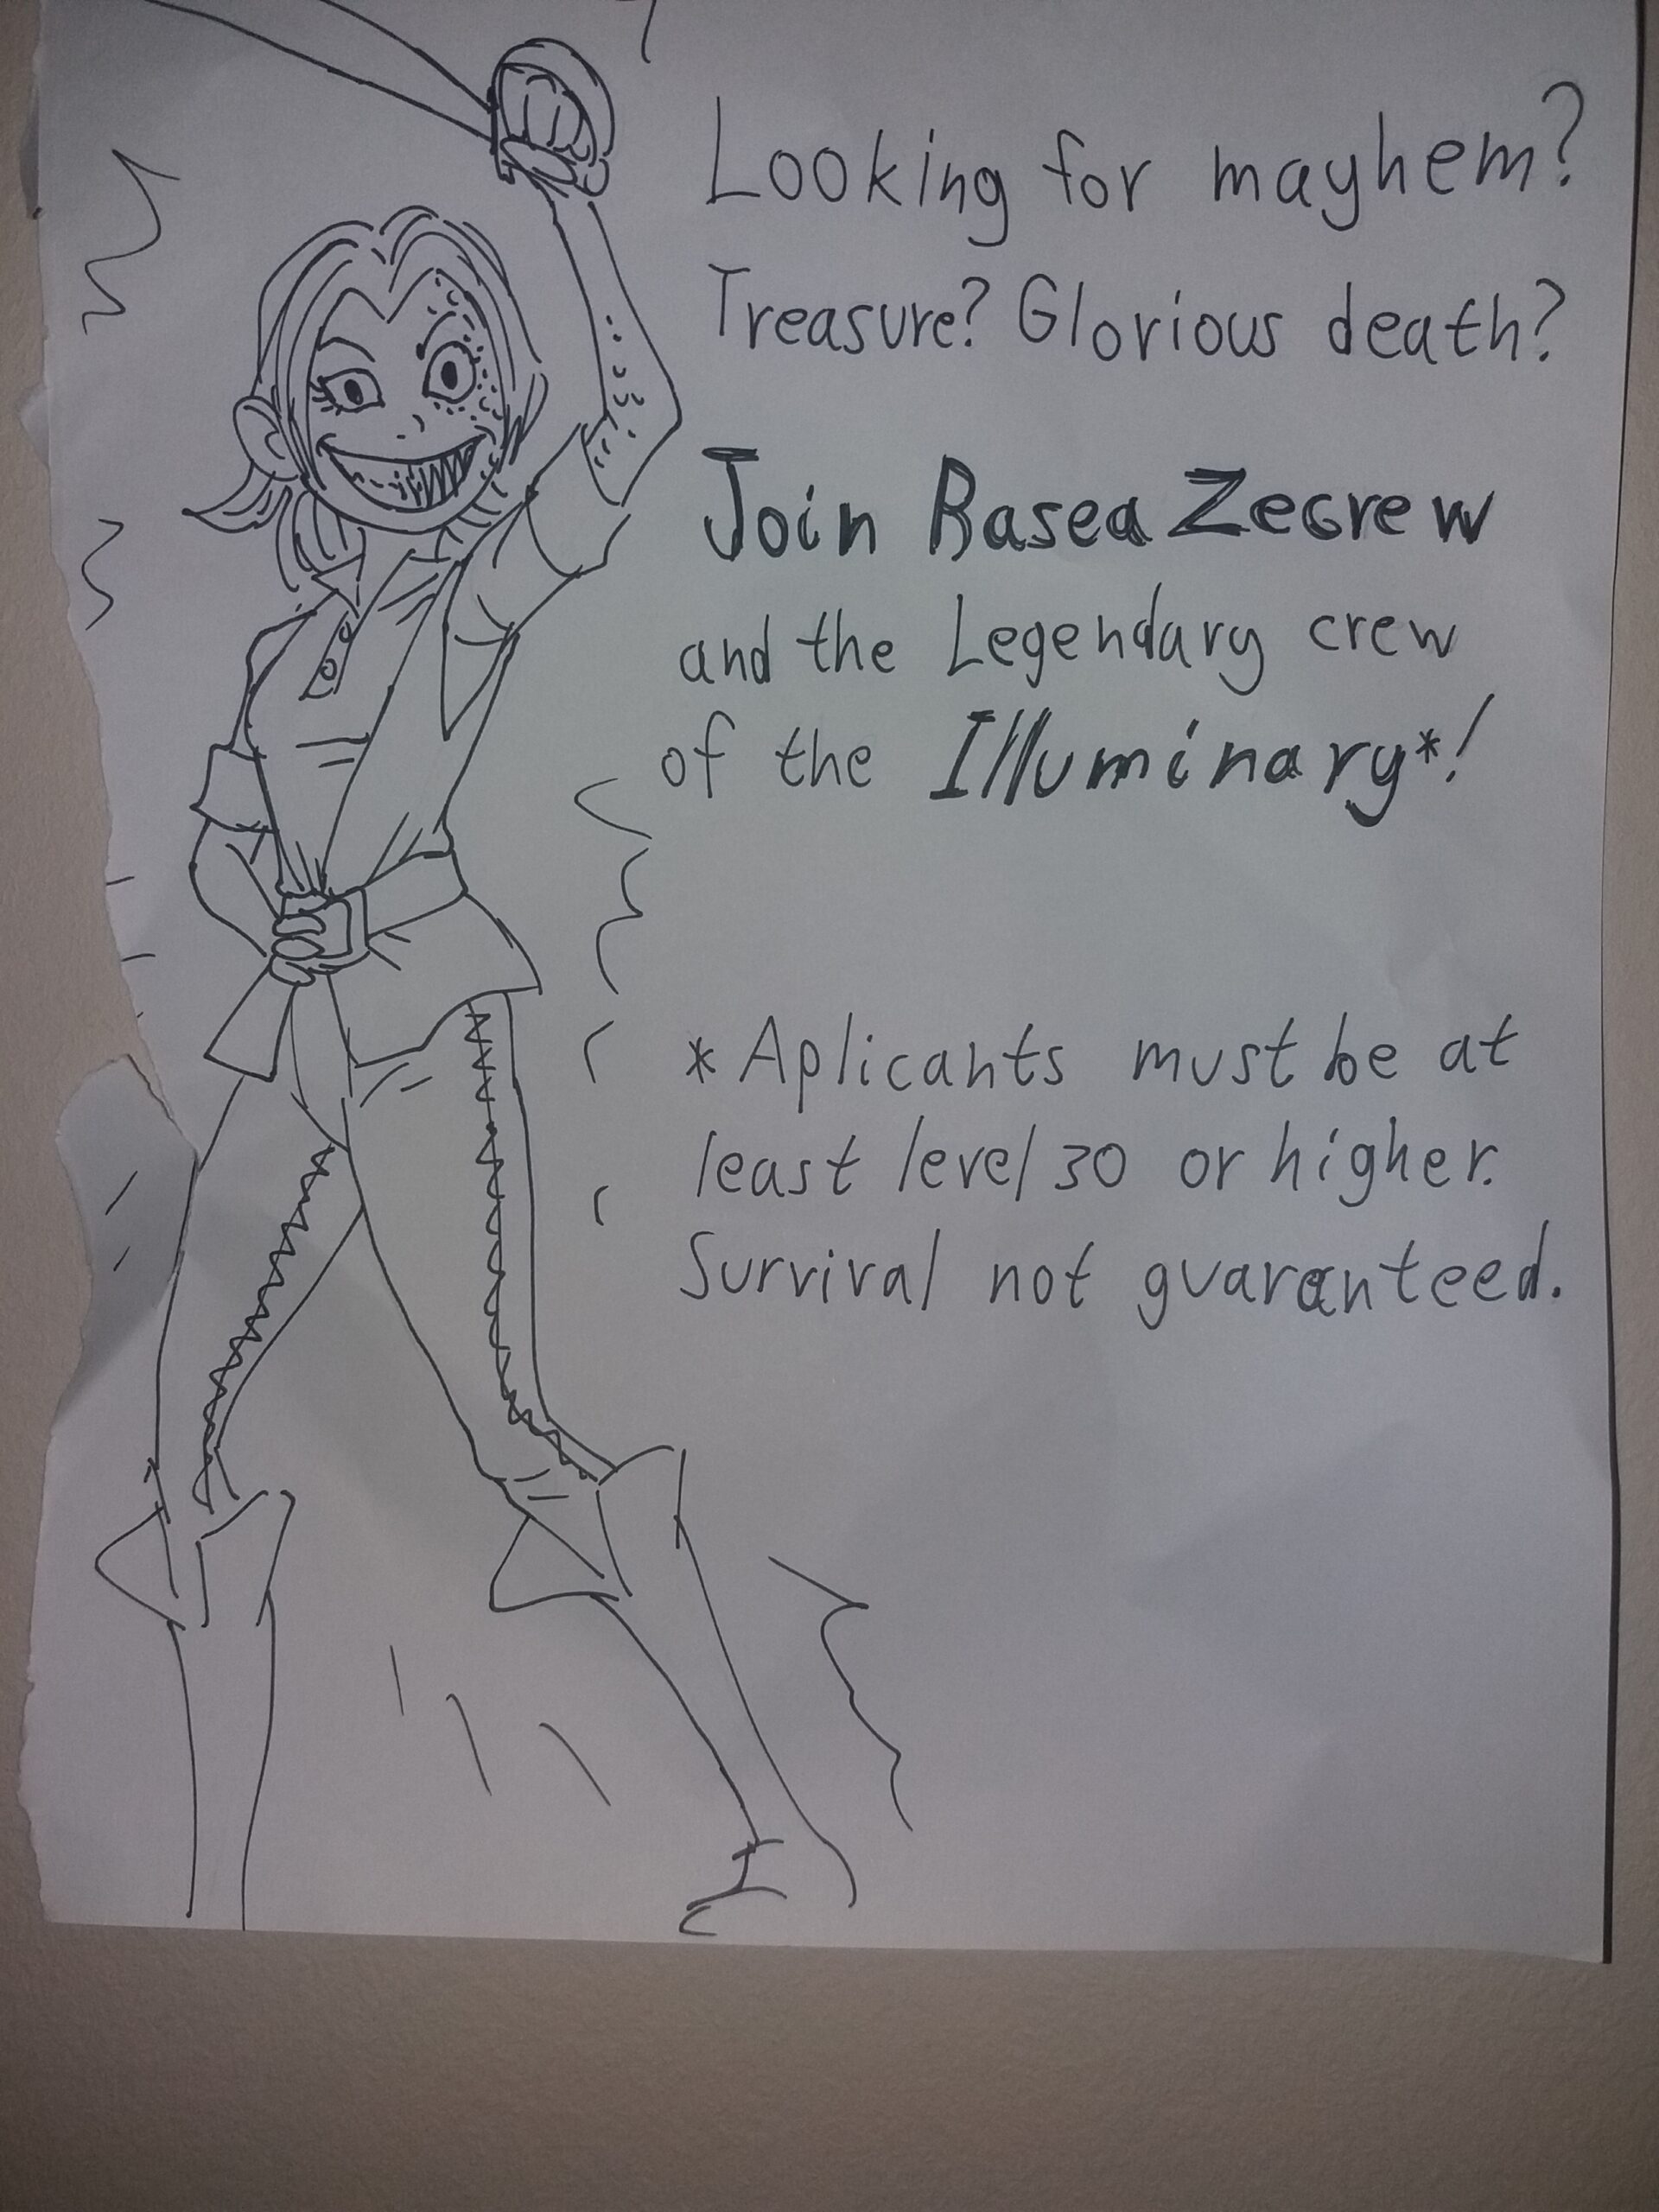 Looking for mayhem?
Treasure? Glorious death?
Join Basea Zecrew
and the Legendary crew
of the Illuminary*!
*Aplicants must be at
least level 30 or higher.
Survival not guaranteed.